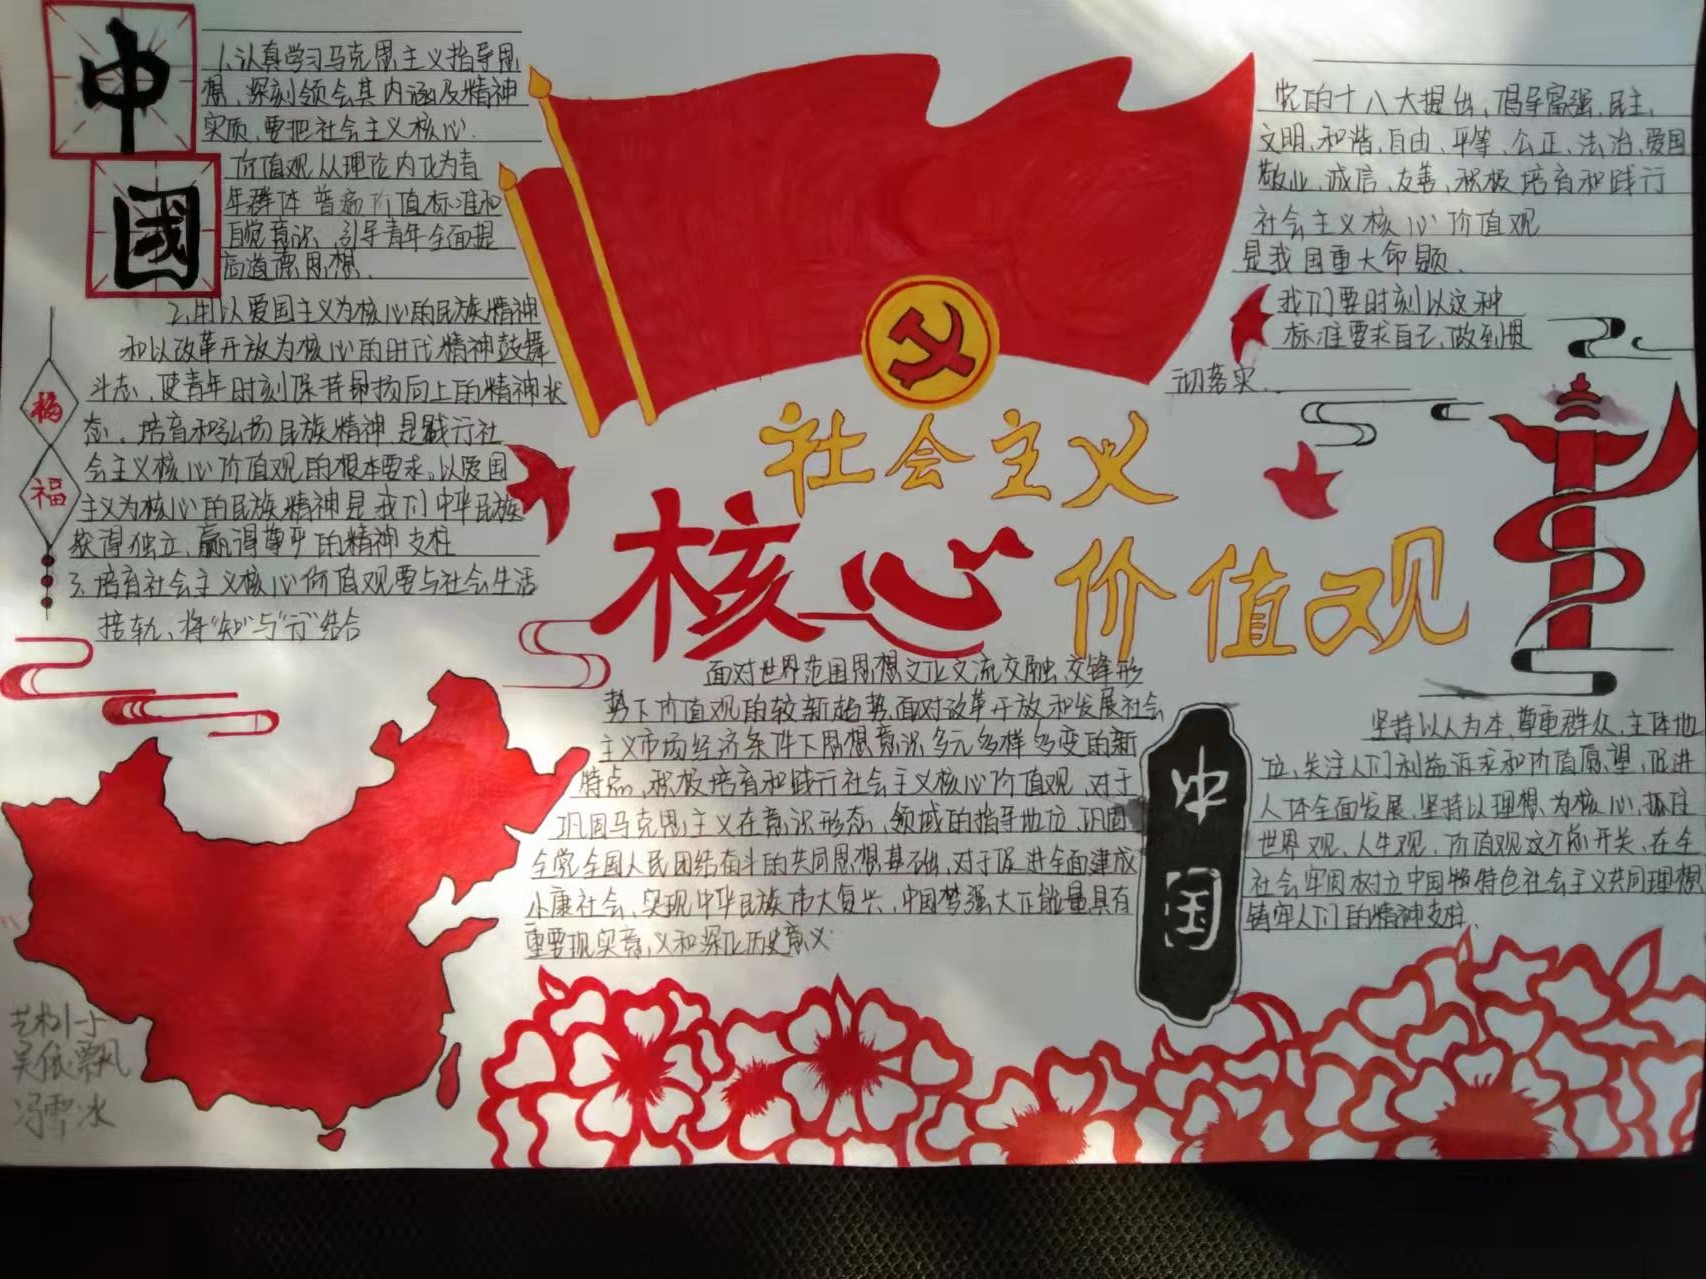 中
國
1.认真学习马克思主义指导思
想、深刻领会其内涵及精神
实质,要把社会主义核心
价值观从理论内化为青
年群体普遍价值标准和
自觉意识,引导青年全面提
高道德思想.
2.用以爱国主义为核心的民族精神
和以改革开放为核心的时代精神鼓舞
斗志,使青年时刻保持昂扬向上的精神状
态。培育和弘扬民族精神是践行社
会主义核心价值观的根本要求。以爱国
主义为核心的民族精神是我们中华民族
获得独立、赢得尊严的精神支柱
3.培育社会主义核心价值观要与社会生活
接轨、将“知”与“行”结合
福
社会主义
核心价值观
党的十八大提出,倡导富强、民主、
文明、和谐、自由、平等、公正、法治、爱国
敬业、诚信、友善、积极培育和践行
社会主义核心价值观
是我国重大命题.
我们要时刻以这种
标准要求自己,做到惯
彻落实.
面对世界范围思想文化交流交融、交锋形
势下价值观的较新趋势,面对改革开放和发展社会
主义市场经济条件下思想意识多元多样多变的新
特点,积极培育和践行社会主义核心价值观,对于
巩固马克思主义在意识形态、领域的指导地位,巩固
全党全国人民团结奋斗的共同思想基础,对于促进全面建成
小康社会、实现中华民族伟大复兴,中国梦强大正能量具有
重要现实意义和深化历史意义
中国
坚持以人为本,尊重群众,主体地
位,关注人们利益诉求和价值愿望,促进
人体全面发展,坚持以理想为核心,抓住
世界观、人生观、价值观这个总开关,在全
社会牢固树立中国特色社会主义共同理想
铸牢人们的精神支柱.
冯雪冰